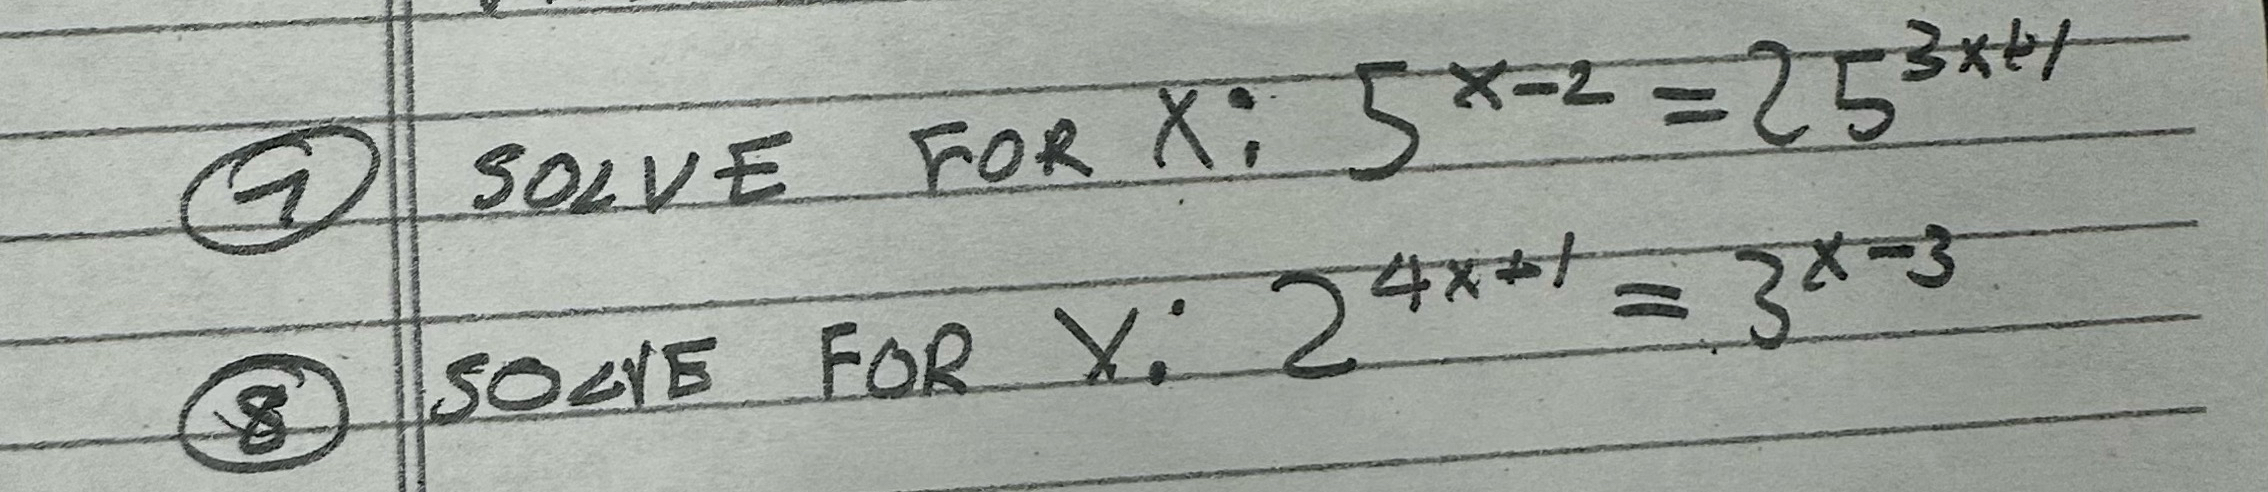 7 SOLVE FOR X: 5^{x-2} = 25^{3x+1}
8 SOLVE FOR X: 2^{4x+1} = 3^{x-3}